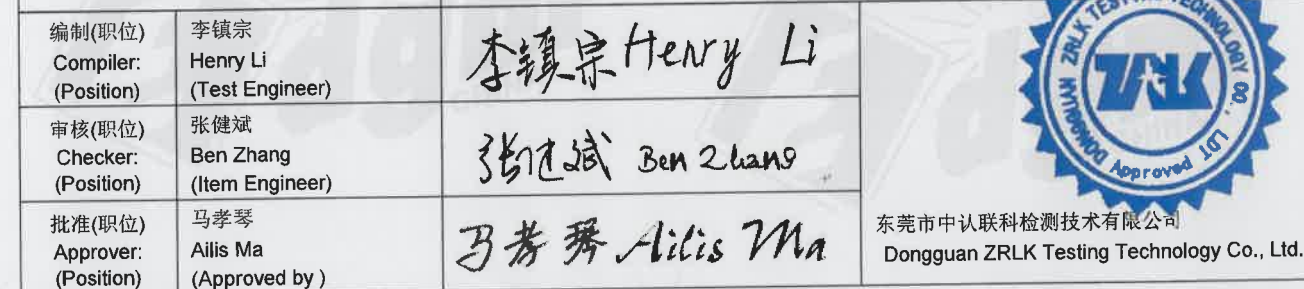 编制(职位)
Compiler:
(Position)
李镇宗
Henry Li
(Test Engineer)
李镇宗 Henry Li
审核(职位)
Checker:
(Position)
张健斌
Ben Zhang
(Item Engineer)
张健斌 Ben Zhang
批准(职位)
Approver:
(Position)
马孝琴
Ailis Ma
(Approved by )
马孝琴 Ailis Ma
DONGGUAN ZRLK TESTING TECHNOLOGY CO., LDT
ZRLK
Approved
东莞市中认联科检测技术有限公司
Dongguan ZRLK Testing Technology Co., Ltd.